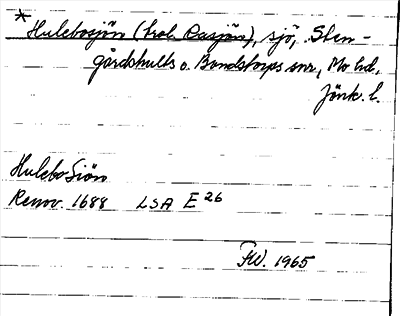 *Hulebosjön (trol. Rasjön), sjö, Sten-
gårdshults o. Bondstorps snr, Mo hd,
Jönk. l.
Hulebo Siön
Renov. 1688 LSA E 26
FW. 1965